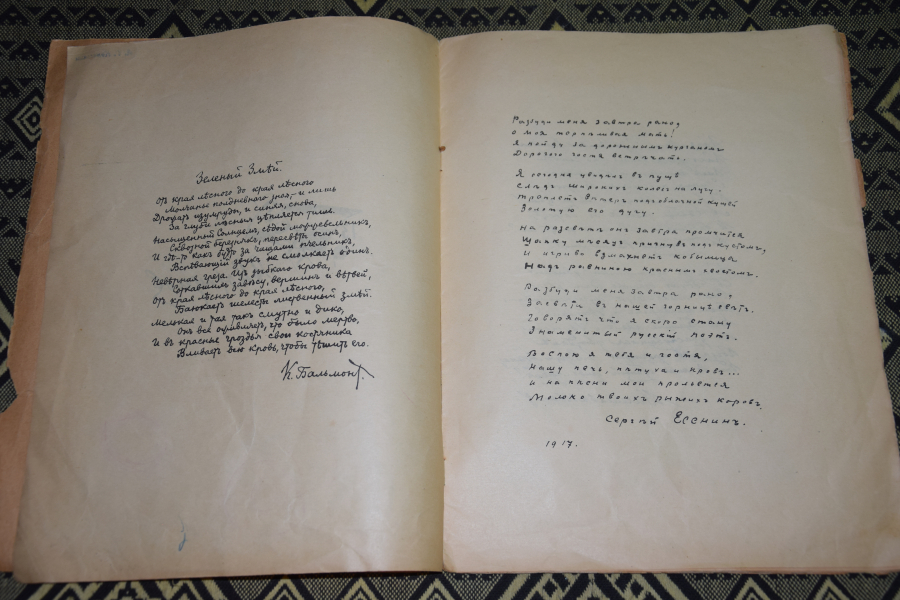 Зеленый Змѣй.
Отъ края лѣсного до края лѣсного
Молчанье полдневного зноя, и лишь
Дрогнетъ изумрудъ, и синяя, снова,
За глуби лѣсныя цѣпляется тишь.
Насыщенный Солнцемъ, сѣдой можжевельникъ,
Сквозной березнякъ, пересвѣтъ осинъ,
И гдѣ-то какъ будто за чащами пчельникъ,
Воспѣвающій звукъ не смолкаетъ одинъ.
Невѣрная греза изъ зыбкаго крова,
Соткавшись завѣсу вершинъ и вѣтвей,
Отъ края лѣсного до края лѣсного,
Баюкаетъ шелестъ мгновенный Змѣй.
Мелькая и тая такъ смутно и дико,
Онъ все оживляетъ, что было мертво,
И въ красные гроздья свои костяника
Вливаетъ всю кровь, чтобы тѣшить его.
К. Бальмонтъ.
Разбуди меня завтра рано,
О моя терпѣливая мать!
Я пойду за дорожнымъ курганомъ
Дорогого гостя встрѣчать.
Я сегодня увидѣлъ въ пущѣ
Слѣдъ широкихъ колесъ на лугу.
Треплетъ вѣтеръ подъ облачной кущей
Золотую его дугу.
На разсвѣтѣ онъ завтра промчится
Шапку мѣсяцъ пригнувъ подъ кустомъ,
И игриво взмахнетъ кобылица
Надъ равниною краснымъ хвостомъ.
Разбуди меня завтра рано,
Засвѣти въ нашей горницѣ свѣтъ.
Говорятъ что я скоро стану
Знаменитый русскій поэтъ.
Воспою я тебя и гостя,
Нашу печь, пѣтуха и кровъ...
И на пѣсни мои прольется
Молоко твоихъ рыжихъ коровъ.
Сергѣй Есенинъ.
1917.